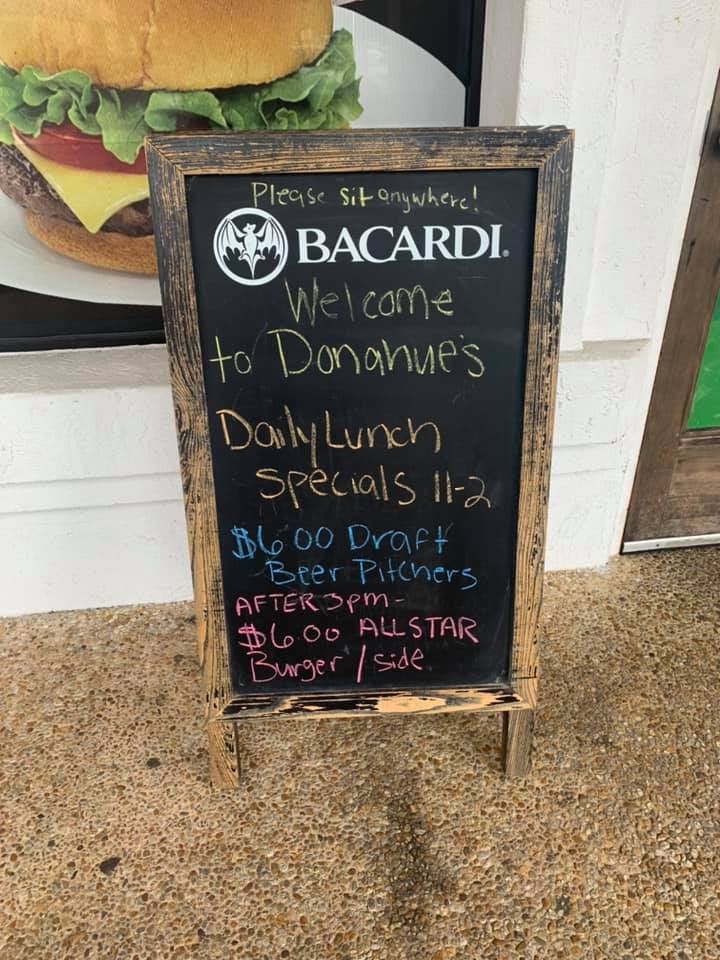 Please sit anywhere!
BACARDI
Welcome
to Donahue's
Daily Lunch
specials 11-2
$6.00 Draft
Beer Pitchers
AFTER 3pm-
$6.00 ALLSTAR
Burger / side